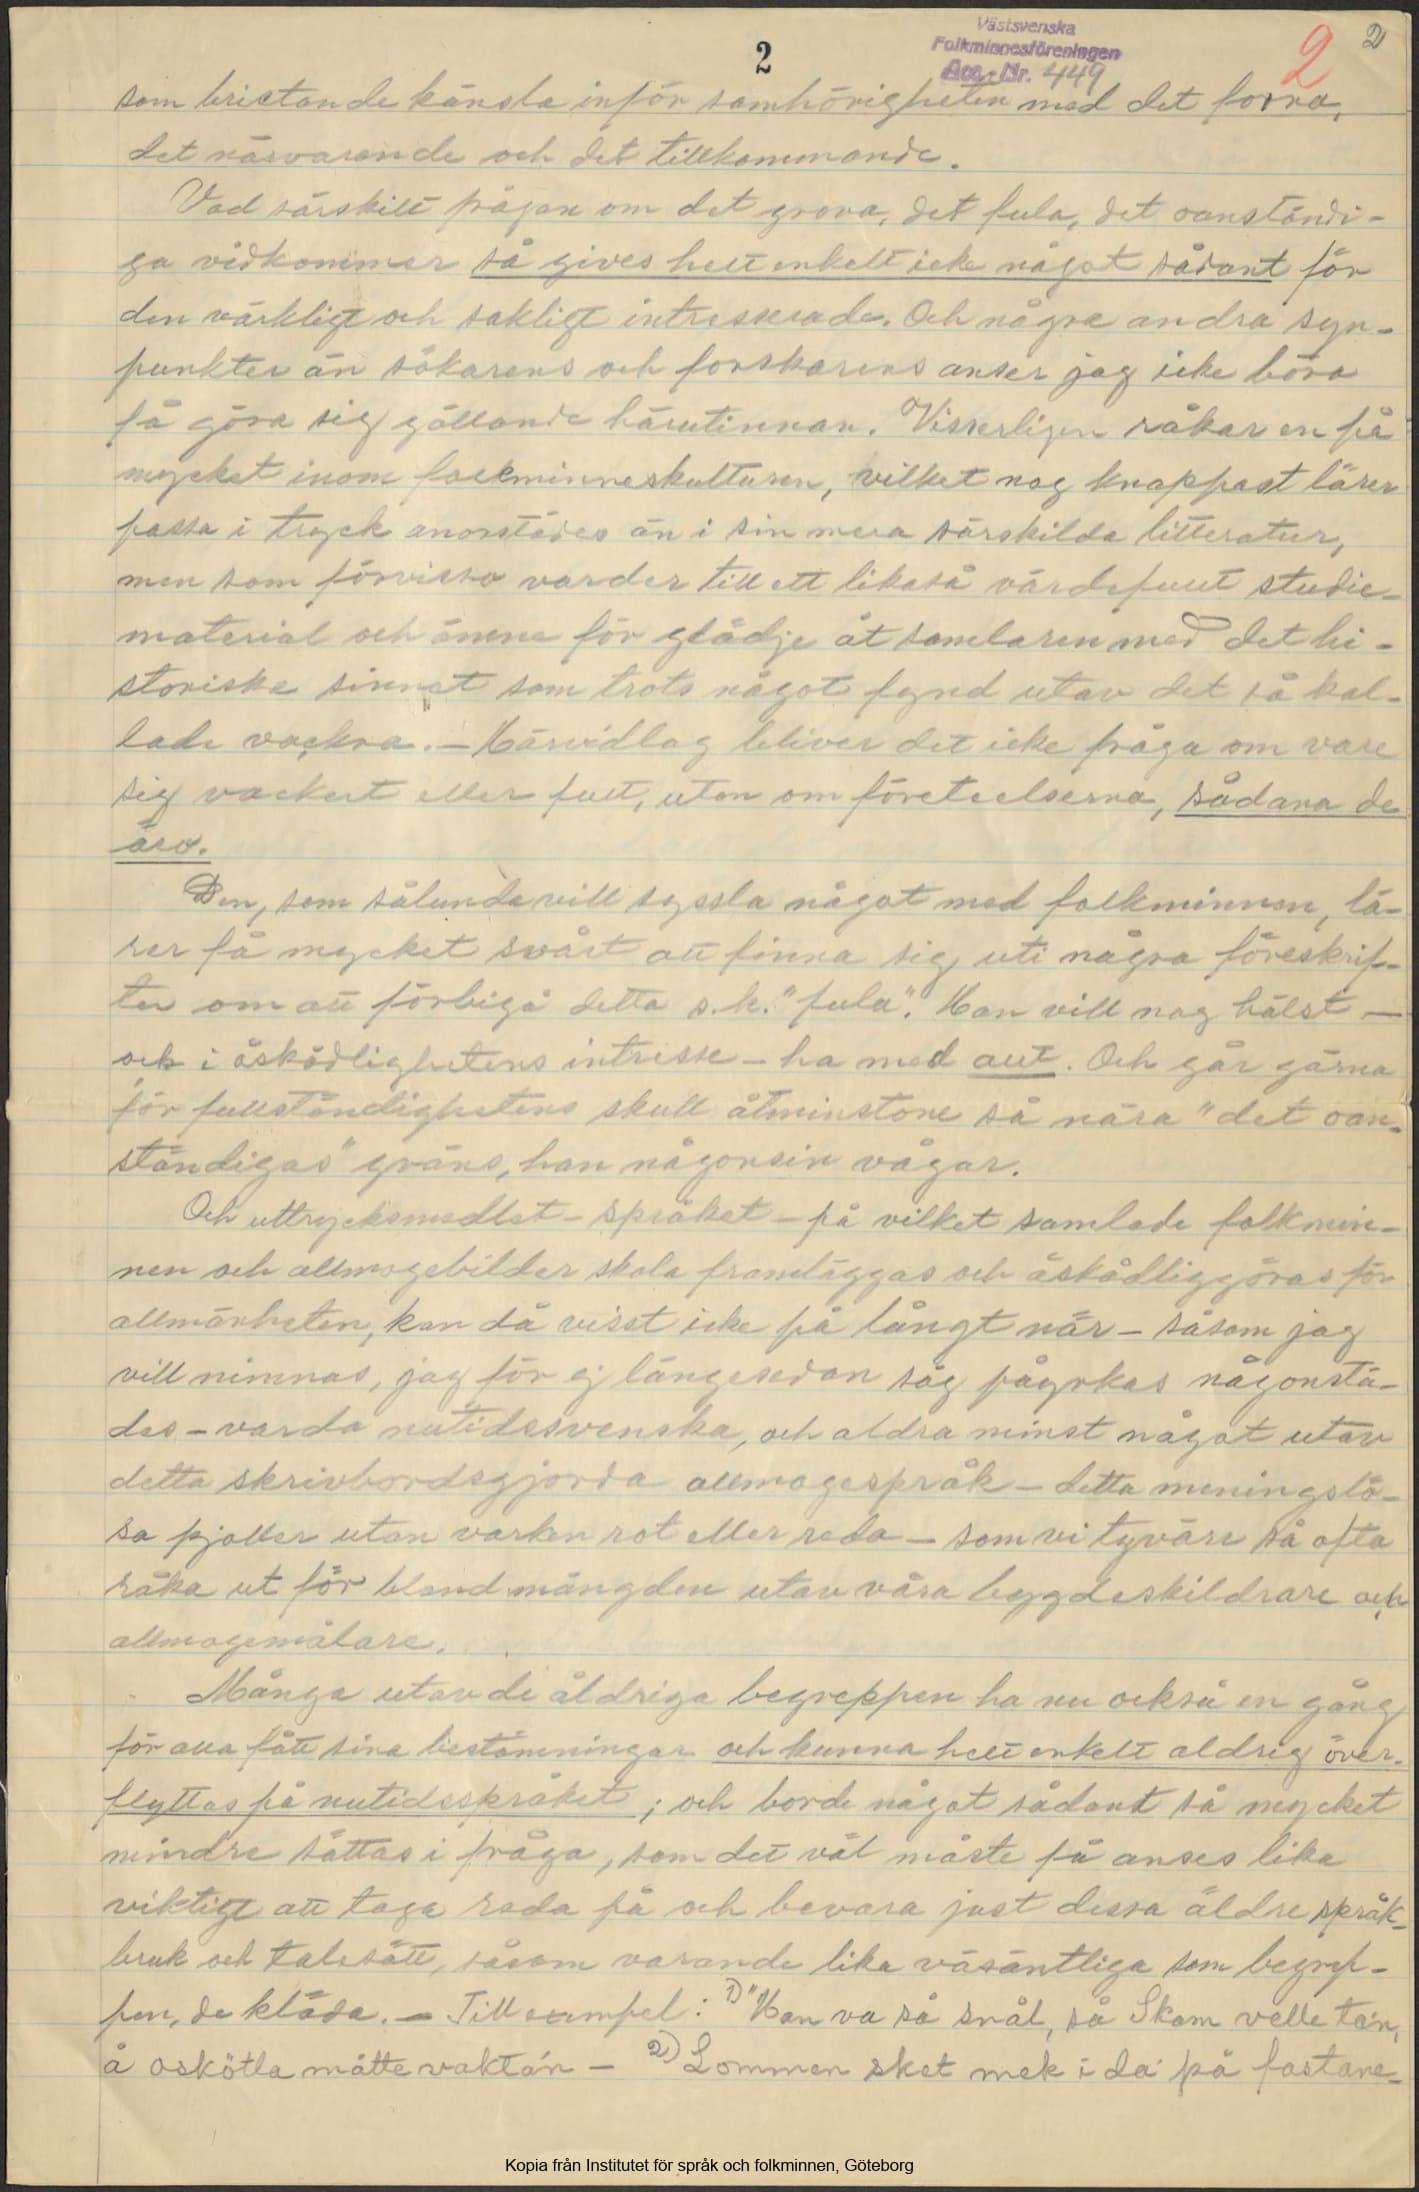 2
Västsvenska
Folkminnesföreningen
Acc.-Nr. 449
2
2
som bristande känsla inför samhörigheten med det forna,
det närvarande och det tillkommande.
Vad särskilt frågan om det grova, det fula, det oanständi-
ga vidkommer så gives helt enkelt icke något sådant för
den värkligt och sakligt intresserade. Och några andra syn-
punkter än sökarens och forskarens anser jag icke böra
få göra sig gällande härutinnan. Visserligen råkar en på
mycket inom folkminneskulturen, vilket nog knappast lärer
passa i tryck anorstädes än i sin mera särskilda litteratur,
men som förvisso varder till ett likaså värdefullt studie-
material och ämne för glädje åt samlaren med det hi-
storiska sinnet som trots något fynd utav det så kal-
lade vackra. – Härvidlag bliver det icke fråga om vare
sig vackert eller fult, utan om företeelserna, sådana de
äro.
Den, som sålunda vill syssla något med folkminnen, lä-
rer få mycket svårt att finna sig uti några föreskrif-
ter om att förbigå detta s.k. "fula". Han vill nog hälst –
och i åskådlighetens intresse – ha med allt. Och går gärna
för fullständighetens skull åtminstone så nära "det oan-
ständigas" gräns, han någonsin vågar.
Och uttrycksmedlet – språket – på vilket samlade folkmin-
nen och allmogebilder skola framläggas och åskådliggöras för
allmänheten, kan då visst icke på långt när – såsom jag
vill minnas, jag för ej längesedan såg påyrkas någonstä-
des – varda nutidssvenska, och aldra minst något utav
detta skrivbordsgjorda allmogespråk – detta meningslö-
sa pjaller utan varken rot eller reda – som vi tyvärr så ofta
råka ut för bland mängden utav våra bygdeskildrare och
allmogemålare.
Många utav de åldriga begreppen ha nu också en gång
för alla fått sina bestämningar och kunna helt enkelt aldrig över-
flyttas på nutidsspråket; och borde något sådant så mycket
mindre sättas i fråga, som det väl måste få anses lika
viktigt att taga reda på och bevara just dessa äldre språk-
bruk och talesätt, såsom varande lika väsäntliga som begrep-
pen, de kläda. – Till exempel: 1) "Han va så snål, så Skam velle ta'n,
å oskötla måtte vakta'n – 2) Lommen sket mek i da på fastane-
Kopia från Institutet för språk och folkminnen, Göteborg